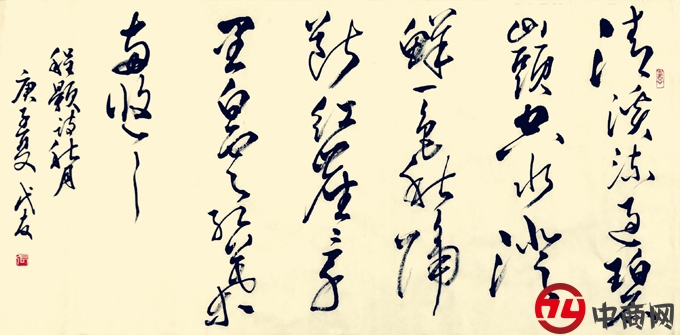 清溪流过碧
山頭空水澄
鲜一色秋隔
断红塵三十
里白云红葉
两悠悠
程颢诗秋月
庚子夏
中商网